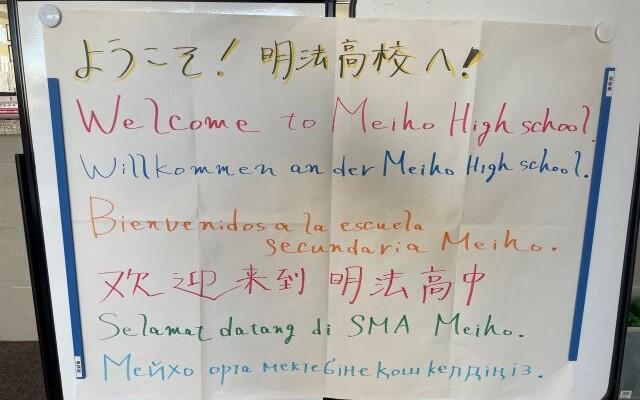 ようこそ! 明法高校へ!
Welcome to Meiho High school.
Willkommen an der Meiho High school.
Bienvenidos a la escuela
secundaria Meiho.
欢迎来到明法高中
Selamat datang di SMA Meiho.
Мейхо орта мектебіне қош келдіңіз.